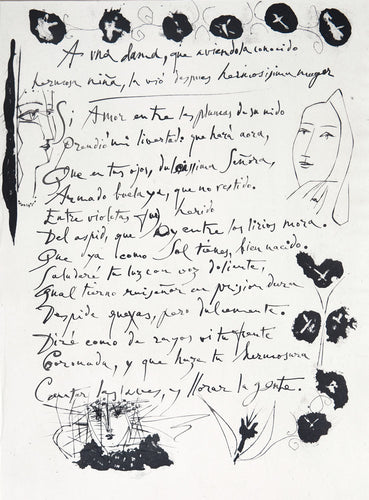 A una dama, que aviendola conocido
hermosa niña, la vió despues hermosissima muger
Si Amor entre las plumas de su nido
Prendió mi libertad que hará aora,
Que en tus ojos, dulcissima Señora,
Armado buela ya, que no vestido.
Entre violetas fui herido
Del aspid, que oy entre los lirios mora.
Que ya como Sol tienes, bien nacido.
Saludaré tu luz con voz doliente,
Qual tierno ruiseñor en prision dura
Despide quexas, pero dulcemente.
Diré como de rayos vi tu frente
Coronada, y que haze tu hermosura
Cantar las aves, y llorar la gente.